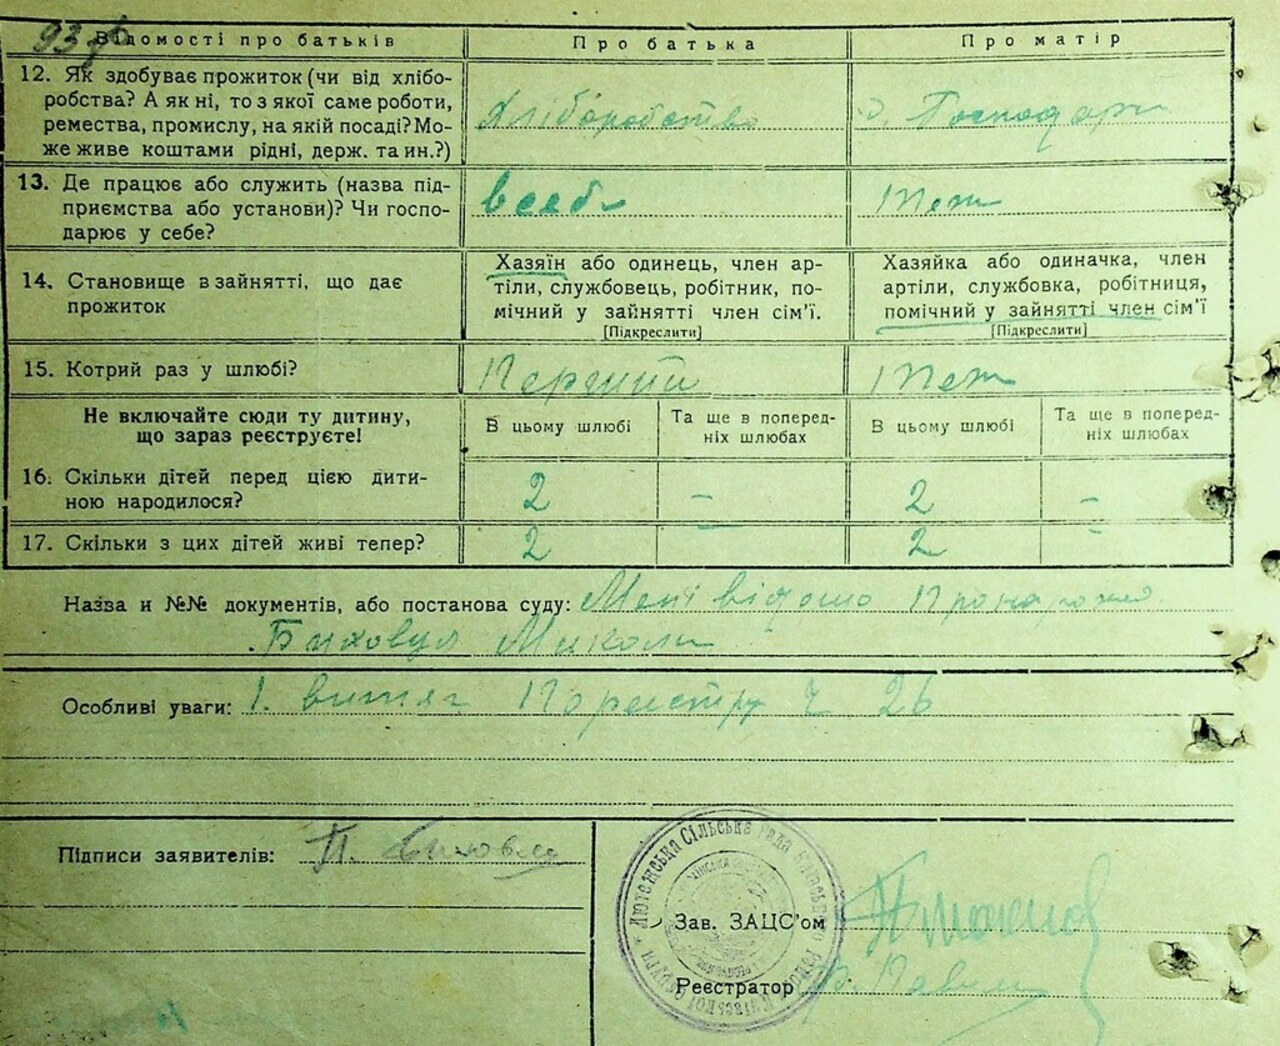 93
Відомості про батьків
Про батька
Про матір
12. Як здобуває прожиток (чи від хлібо-
робства? А як ні, то з якої саме роботи,
ремества, промислу, на якій посаді? Мо-
же живе коштами рідні, держ. та ин.?)
Хліборобство
13. Де працює або служить (назва під-
приємства або установи)? Чи госпо-
дарює у себе?
всебе
теж
14. Становище в зайнятті, що дає
прожиток
Хазяїн або одинець, член ар-
тіли, службовець, робітник, по-
мічний у зайнятті член сім'ї.
[Підкреслити]
Хазяйка або одиначка, член
артіли, службовка, робітниця,
помічний у зайнятті член сім'ї
[Підкреслити]
15. Котрий раз у шлюбі?
Перший
теж
Не включайте сюди ту дитину,
що зараз реєструєте!
В цьому шлюбі
Та ще в поперед-
ніх шлюбах
В цьому шлюбі
Та ще в поперед-
ніх шлюбах
16. Скільки дітей перед цією дити-
ною народилося?
2
–
2
–
17. Скільки з цих дітей живі тепер?
2
–
2
–
Назва и №№ документів, або постанова суду: Мені відомо
Миколи
Особливі уваги: 1. витяг По реестру 26
Підписи заявителів: П.
Зав. ЗАЦС'ом
Реєстратор
Лютенська Сільська рада